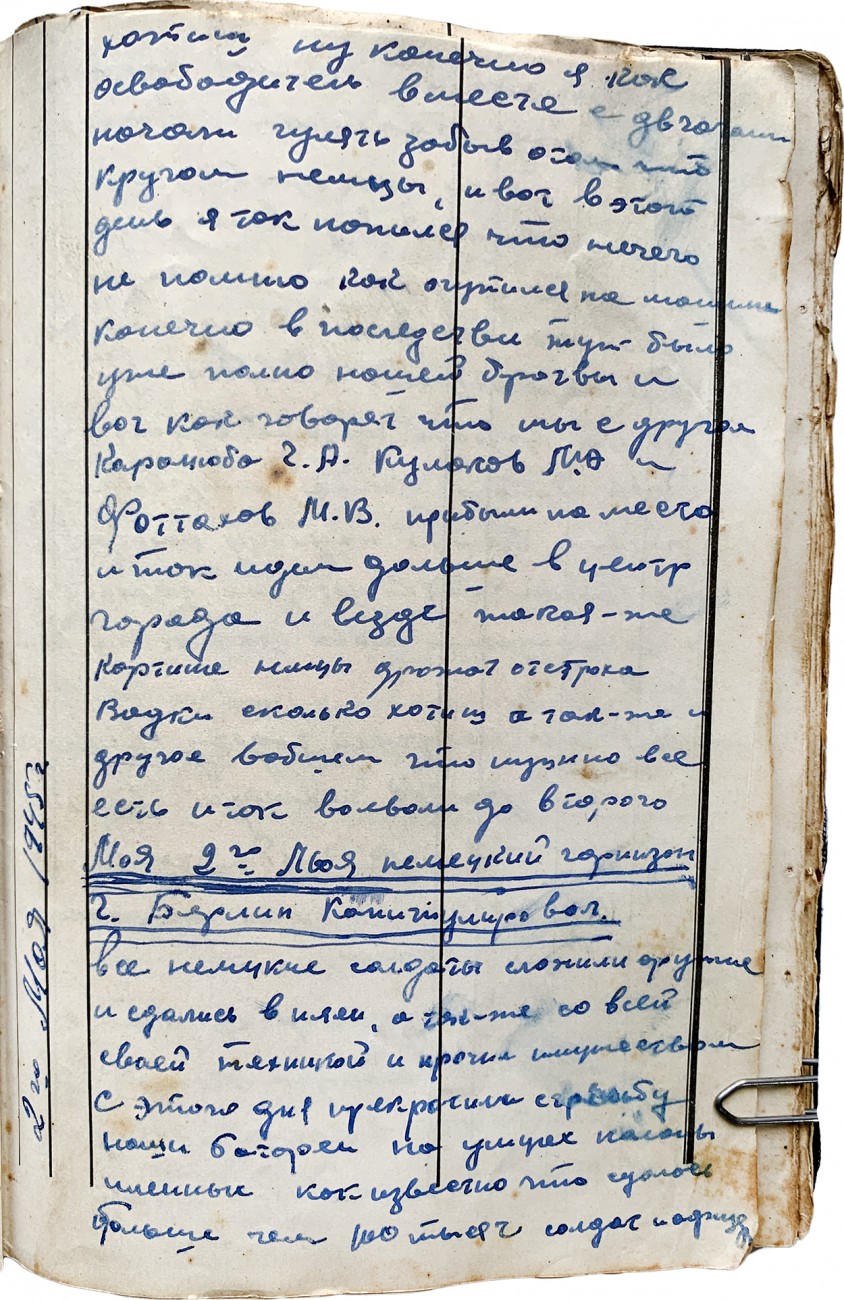 хотиш ну конечно я как
асвабадитель вместе с двчатами
начали гулять забыв отом что
кругом немцы, и вот в этот
день я так напился что нечего
не помню как очутился на машине
конечно в последстви тут было
уже полно нашей братвы и
вот как говорят что мы с другом
Г.А. Кулаков М.А и
Фоттахов М.В. прибыли на место
и так идем дальше в центр
города и везде такая-же
картина немцы дрожат отстраха
Водки сколько хотиш а так-же и
другое вобщем что нужно все
есть итак воевали до второго
Мая 2го Мая немецкий гарнизон
г. Берлин Капитулировал.
все немецкие солдаты сложили оружие
и сдались в плен, а так-же со всей
сваей техникой и прочим имуществом
С этого дня прекратили стрельбу
наши батареи на улицах калоны
пленных как известно что сдалось
больше чем 100 тысяч солдат и офицер
2го Мая 1945г